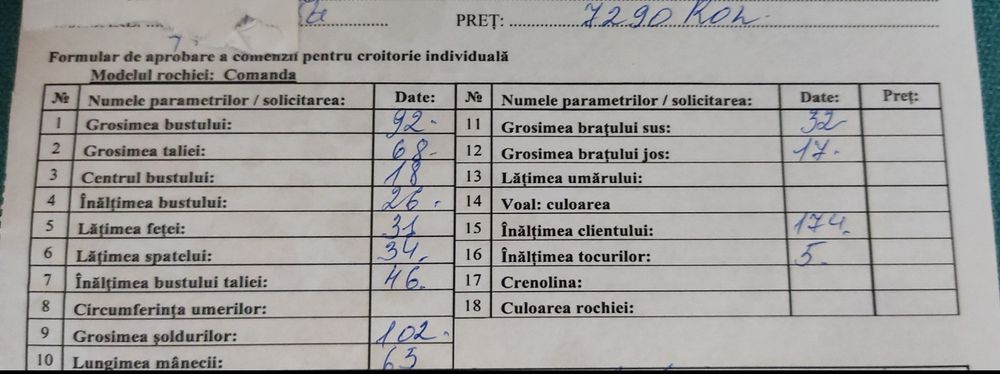 PREȚ: 7290 Ron.
Formular de aprobare a comenzii pentru croitorie individuală
Modelul rochiei: Comanda
№ Numele parametrilor / solicitarea: Date: № Numele parametrilor / solicitarea: Date: Preț:
1 Grosimea bustului: 92. 11 Grosimea brațului sus: 32
2 Grosimea taliei: 68. 12 Grosimea brațului jos: 17.
3 Centrul bustului: 18 13 Lățimea umărului:
4 Înălțimea bustului: 26. 14 Voal: culoarea
5 Lățimea feței: 31 15 Înălțimea clientului: 174.
6 Lățimea spatelui: 34. 16 Înălțimea tocurilor: 5.
7 Înălțimea bustului taliei: 46. 17 Crenolina:
8 Circumferința umerilor: 18 Culoarea rochiei:
9 Grosimea șoldurilor: 102.
10 Lungimea mânecii: 63